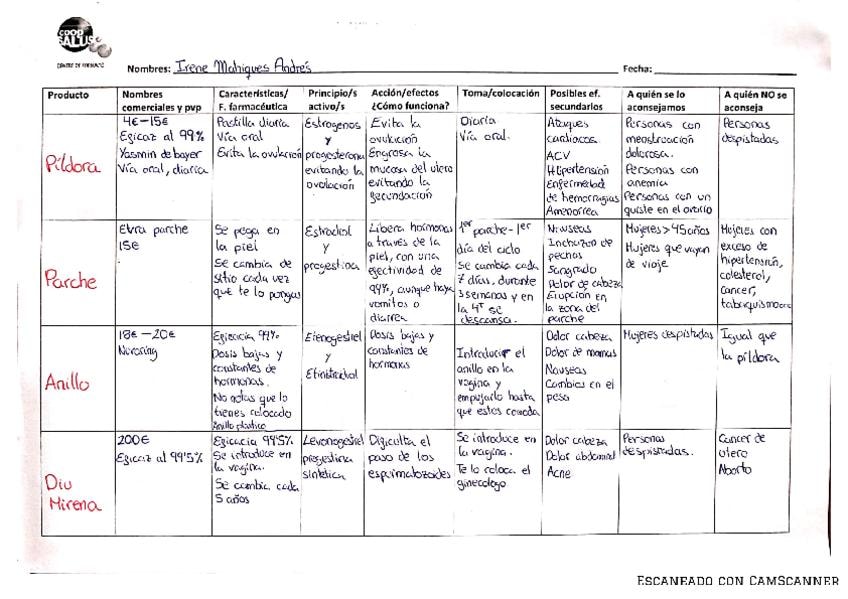 COOP
SALUS
CENTRE DE FORMACIÓ
Nombres: Irene Mahiques Andrés
Fecha:
Producto
Nombres
comerciales y pvp
Características/
F. farmacéutica
Principio/s
activo/s
Acción/efectos
¿Cómo funciona?
Toma/colocación
Posibles ef.
secundarios
A quién se lo
aconsejamos
A quién NO se
aconseja
Píldora
4€-15€
Egicaz al 99%
Yasmin de bayer
Vía oral, diaria
Pastilla diaria
Vía oral
Evita la ovulación
Estrogenos
y
progesterona
evitando la
ovolación
Evita la
ovulición
Engrosa la
mucosa del utero
evitando la
gecundación
Diaria
Vía oral.
Ataques
cardiacos.
ACV
Hipertensión
Engermedad
de hemorragias
Amenorrea
Personas con
menstruación
dolorosa.
Personas con
anemia
Personas con un
quiste en el ovario
Personas
despistadas
Parche
Evra parche
15€
Se pega en
la piel
Se cambia de
sitio cada vez
que te lo pongas
Estradiol
y
progestina
Libera hormonas
a través de la
piel, con una
egectividad de
99%, aunque haya
vomitos o
diarrea
1er parche-1er
día del ciclo
Se cambia cada
7 días, durante
3 semanas y en
la 4ª se
descansa.
Nauseas
Inchazon de
pechos
Sangrado
Dolor de cabeza
Erupción en
la zona del
parche
Mujeres>45años
Mujeres que vayan
de viaje
Mujeres con
exceso de
hipertensión,
colesterol,
cancer,
Anillo
18€-20€
Nuvaring
Egicacia 99%
Dosis bajas y
constantes de
hormonas.
No notas que lo
tienes colocado
Anillo plastico
Etenogestrel
y
Etinistradiol
Dosis bajas y
constantes de
hormonas
Introducir el
anillo en la
vagina y
empujarlo hasta
que estes comoda
Dolor cabeza
Dolor de mamas
Nauseas
Cambios en el
peso
Mujeres despistadas
Igual que
la píldora
Diu
Mirena
200€
Egicaz al 99'5%
Egicacia 99'5%
Se introduce en
la vagina.
Se cambia cada
5 años
Levonogestrel
progestina
sintética
Digiculta el
paso de los
espermatozoides
Se introduce en
la vagina.
Te lo coloca el
ginecologo
Dolor cabeza
Dolor abdominal
Acne
Personas
despistadas.
Cancer de
utero
Aborto
ESCANEADO CON CAMSCANNER